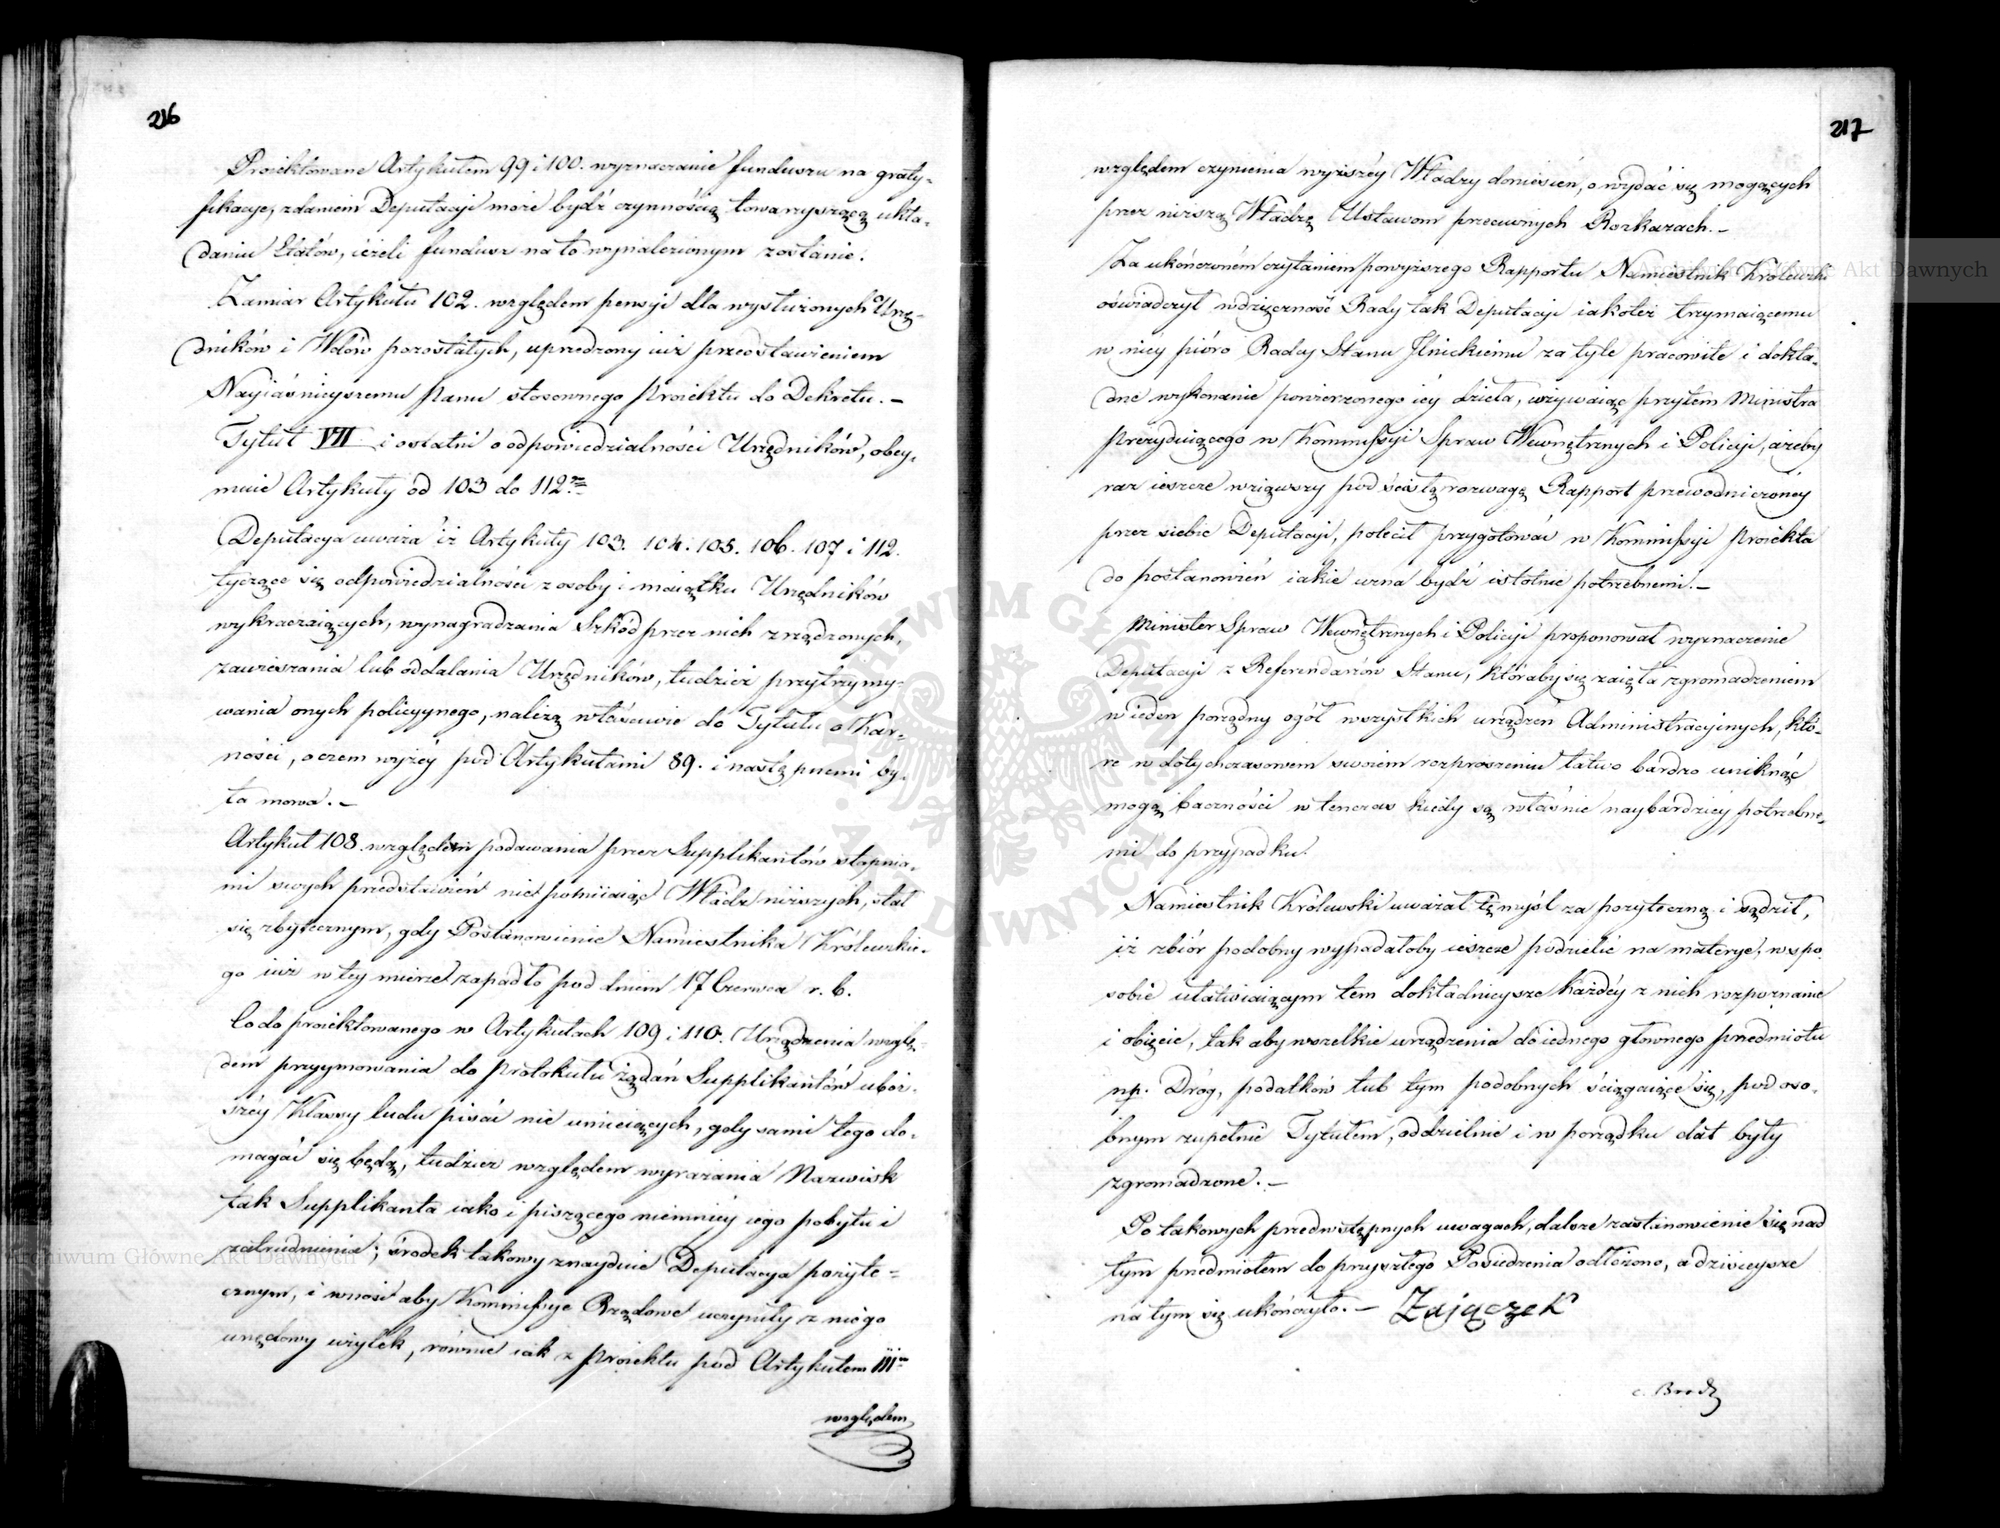 216
Proiektowane Artykułem 99 i 100. wyznaczanie funduszu na graty-
fikacye, zdaniem Deputacyi może bydź czynnością towarzyszącą ukła-
daniu Etatów, ieżeli fundusz na to wynalezionym zostanie.
Zamiar Artykułu 102. względem pensyi dla wysłużonych Urzę-
dników i Wdów pozostałych, uprzedzony iuż przedstawieniem
Nayiaśnieyszemu Panu stosownego Proiektu do Dekretu. —
Tytuł VII i ostatni o odpowiedzialności Urzędników, obey-
muie Artykuły od 103 do 112.
Deputacya uważa iż Artykuły 103. 104. 105. 106. 107 i 112.
tyczące się odpowiedzialności z osoby i maiątku Urzędników
wykraczaiących, wynagradzania Szkód przez nich zrządzonych,
zawieszania lub oddalania Urzędników, tudzież przytrzymy-
wania onych policyynego, należą właściwie do Tytułu o Kar-
ności, o czem wyżéy pod Artykułami 89. i następnemi by-
ła mowa. —
Artykuł 108. względem podawania przez Supplikantów stopnia-
mi swych przedstawień nie pomiiaiąc Władz niższych, stał
się zbytecznym, gdy Postanowienie Namiestnika Królewskie-
go iuż w tey mierze zapadło pod dniem 17 Czerwca r. b.
Co do proiektowanego w Artykułach 109 i 110. Urządzenia wzglę-
dem przyymowania do Protokułu żądań Supplikantów uboż-
széy Klassy ludu pisać nie umieiących, gdy sami tego do-
magać się będą, tudzież względem wyrażania Nazwisk
tak Supplikanta iako i piszącego niemniéy iego pobytu i
zatrudnienia; środek takowy znayduie Deputacya pożyte-
cznym, i wnosi aby Kommissye Rządowe uczyniły z niego
urzędowy użytek, równie iak z Proiektu pod Artykułem 111
względem
217
względem czynienia wyższéy Władzy doniesień, o wydać się mogących
przez niższą Władzę Ustawom przeciwnych Rozkazach. —
Za ukończoném czytaniem powyższego Rapportu Namiestnik Królewski
oświadczył wdzięczność Rady tak Deputacyi iakoteż trzymaiącemu
w niey pióro Radcy Stanu Ilnickiemu za tyle pracowite i dokła-
dne wykonanie powierzonego iéy dzieła, wzywaiąc przytem Ministra
Prezyduiącego w Kommissyi Spraw Wewnętrznych i Policyi, ażeby
raz ieszcze wziąwszy pod ścisłą rozwagę Rapport przewodniczonéy
przez siebie Deputacyi, polecił przygotować w Kommissyi Proiekta
do postanowień iakie uzna bydź istotnie potrzebnemi. —
Minister Spraw Wewnętrznych i Policyi proponował wyznaczenie
Deputacyi z Referendarzów Stanu, któraby się zaięła zgromadzeniem
w ieden porządny ogół wszystkich urządzeń Administracyinych, któ-
re w dotychczasowem swoiem rozproszeniu łatwo bardzo uniknąć
mogą baczności w tenczas kiedy są właśnie naybardziéy potrzebne-
mi do przypadku.
Namiestnik Królewski uważał tę myśl za pożyteczną i sądził,
iż zbiór podobny wypadałoby ieszcze podzielić na materye, w spo
sobie ułatwiaiącym tem dokładnieysze każdéy z nich rozpoznanie
i obięcie, tak aby wszelkie urządzenia do iednego głownego przedmiotu
np. Dróg, podatków lub tym podobnych ściągaiące się, pod oso-
bnym zupełnie Tytułem, oddzielnie i w porządku dat były
zgromadzone. —
Po takowych przedwstępnych uwagach, dalsze zastanowienie się nad
tym przedmiotem do przyszłego Posiedzenia odłożono, a dzisieysze
na tym się ukończyło. — Zajączek
Archiwum Główne Akt Dawnych
Archiwum Główne Akt Dawnych
ARCHIWUM GŁÓWNE AKT DAWNYCH